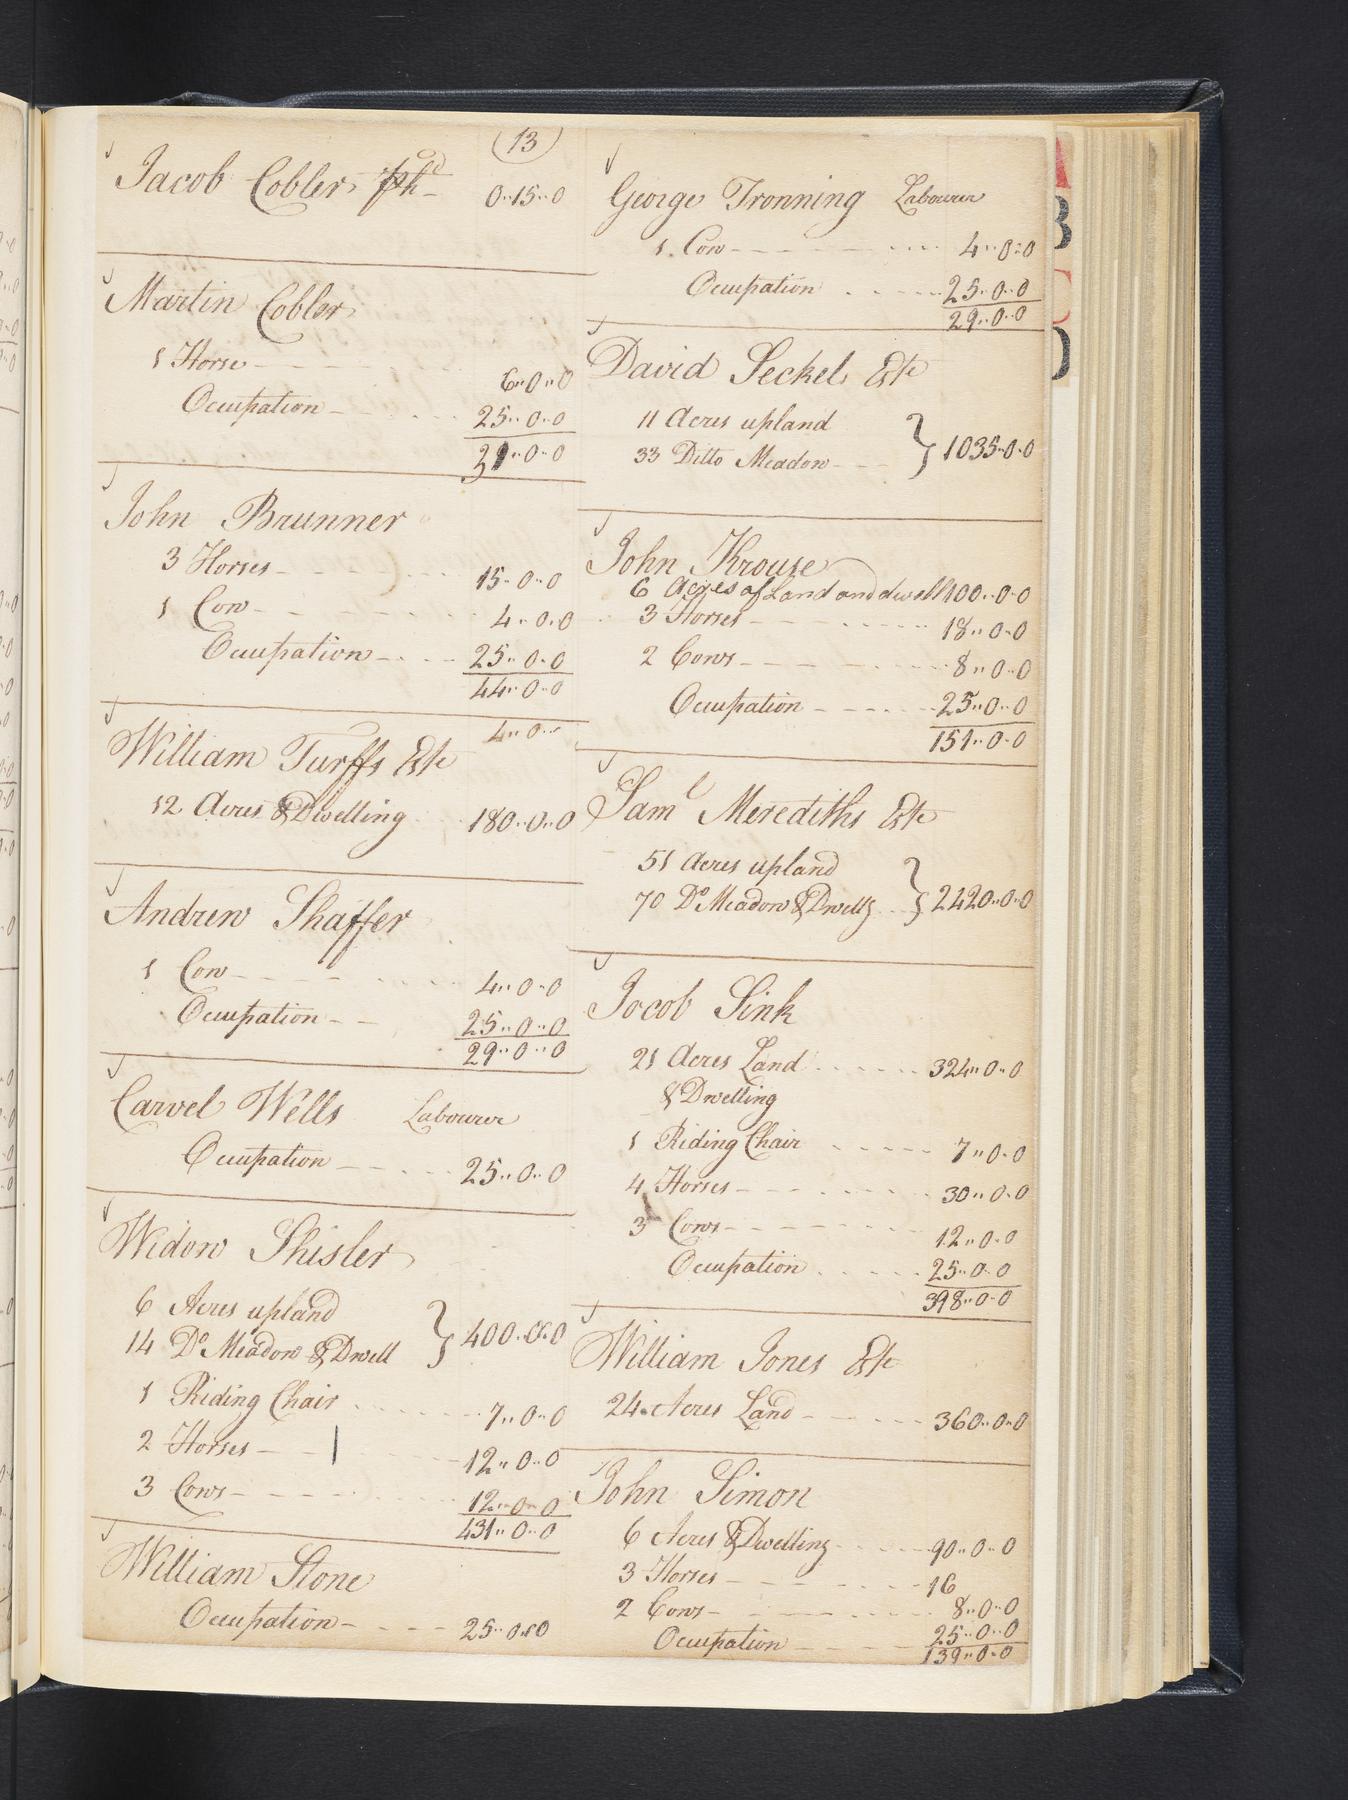 13
Jacob Cobler pd 0..15..0
Martin Cobler
1 Horse 6..0..0
Occupation 25..0..0
31..0..0
John Brunner
3 Horses 15..0..0
1 Cow 4..0..0
Occupation 25..0..0
44..0..0
4..0..
William Turffs Est
12 Acres & Dwelling 180..0..0
Andrew Shaffer
1 Cow 4..0..0
Occupation 25..0..0
29..0..0
Carvel Wells Labourer
Occupation 25..0..0
Widow Shisler
6 Acres upland
14 Do Meadow & Dwell } 400..0..0
1 Riding Chair 7..0..0
2 Horses 12..0..0
3 Cows 12..0..0
431..0..0
William Stone
Occupation 25..0..0
George Tronning Labourer
1 Cow 4..0..0
Occupation 25..0..0
29..0..0
David Seckel Est
11 Acres upland
33 Ditto Meadow } 1035..0..0
John Krouse
6 Acres of Land and dwell 100..0..0
3 Horses 18..0..0
2 Cows 8..0..0
Occupation 25..0..0
151..0..0
Saml Merediths Est
51 Acres upland
70 Do Meadow & Dwellg } 2420..0..0
Jocob Sink
21 Acres Land 324..0..0
& Dwelling
1 Riding Chair 7..0..0
4 Horses 30..0..0
3 Cows 12..0..0
Occupation 25..0..0
398..0..0
William Jones Est
24 Acres Land 360..0..0
John Simon
6 Acres & Dwelling 90..0..0
3 Horses 16
2 Cows 8..0..0
Occupation 25..0..0
139..0..0